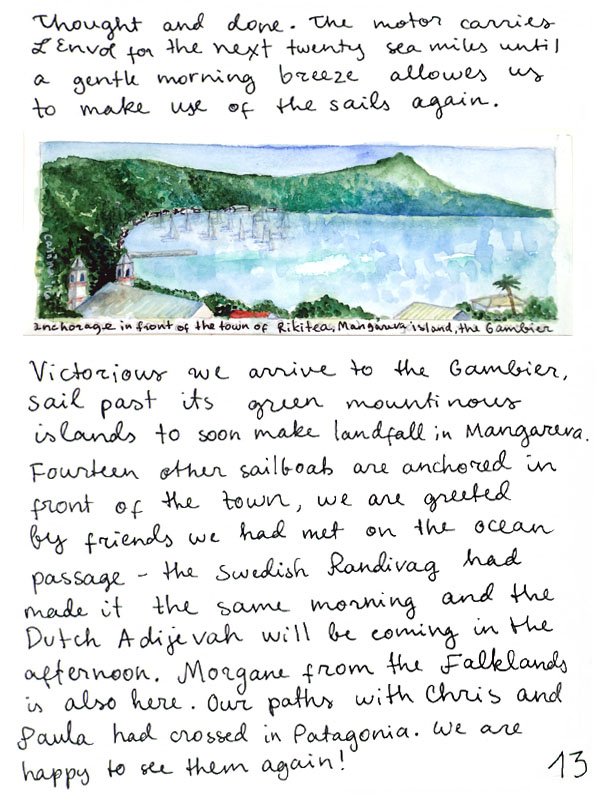 Thought and done. The motor carries
L'Envol for the next twenty sea miles until
a gentle morning breeze allowes us
to make use of the sails again.
anchorage in front of the town of Rikitea, Mangareva island, the Gambier
Victorious we arrive to the Gambier,
sail past its green mountinous
islands to soon make landfall in Mangareva.
Fourteen other sailboats are anchored in
front of the town, we are greeted
by friends we had met on the ocean
passage - the Swedish Randivag had
made it the same morning and the
Dutch Adijevah will be coming in the
afternoon. Morgane from the Falklands
is also here. Our paths with Chris and
Paula had crossed in Patagonia. We are
happy to see them again!
13